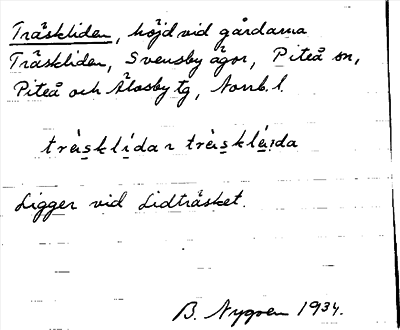 Träskliden, höjd vid gårdarna
Träskliden, Svensby ägor, Piteå sn,
Piteå och Älvsby tg, Norrb. l.
träsklidan träskläida
Ligger vid Lidträsket.
B. Nygren 1934.